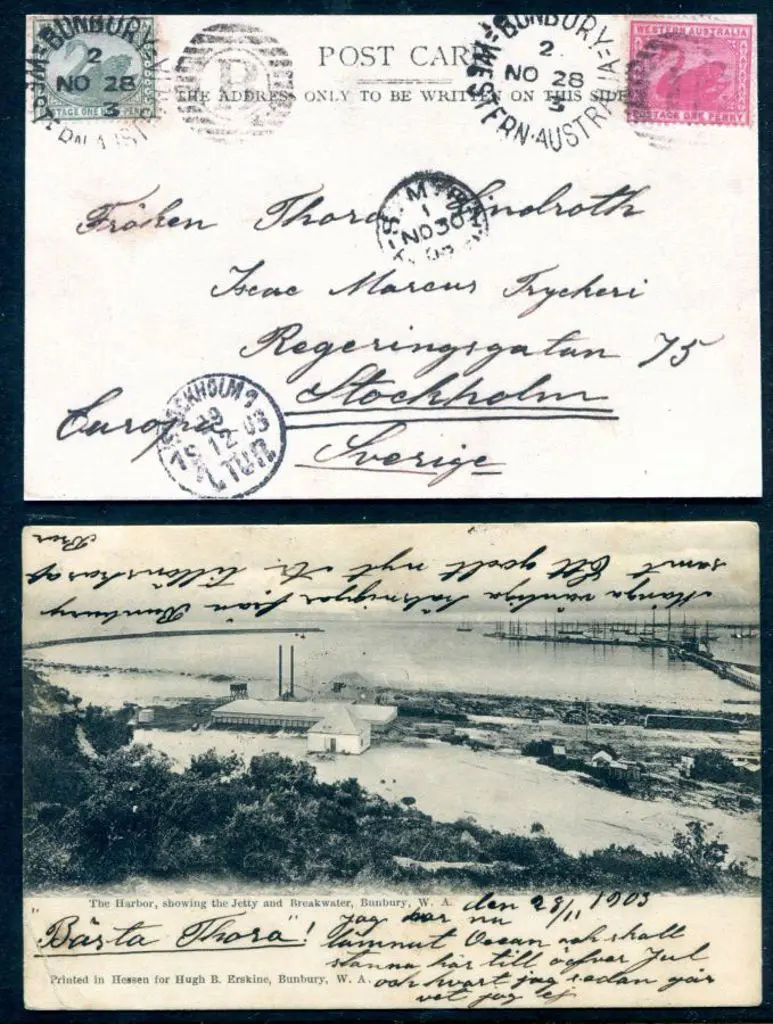 BUNBURY
2
NO 28
3
POSTAGE ONE PENNY
P
POST CARD
THE ADDRESS ONLY TO BE WRITTEN ON THIS SIDE
BUNBURY=
2
NO 28
3
WESTERN·AUSTRALIA
WESTERN AUSTRALIA
POSTAGE ONE PENNY
1
NO 30
Fröken Thora Lindroth
Isac Marcus Tryckeri
Regeringsgatan 75
Stockholm
Europa
Sverige
STOCKHOLM 1
12 03
1 TUR
Många vänliga hälsningar från Bunbury
samt Ett godt nytt år tillönskas af
Bror
The Harbor, showing the Jetty and Breakwater, Bunbury, W. A.
den 28/11 1903
"Bästa Thora"!
jag har nu
lämnat Ocean och skall
stanna här till öfver Jul
och hvart jag sedan går
vet jag ej
Printed in Hessen for Hugh B. Erskine, Bunbury, W. A.